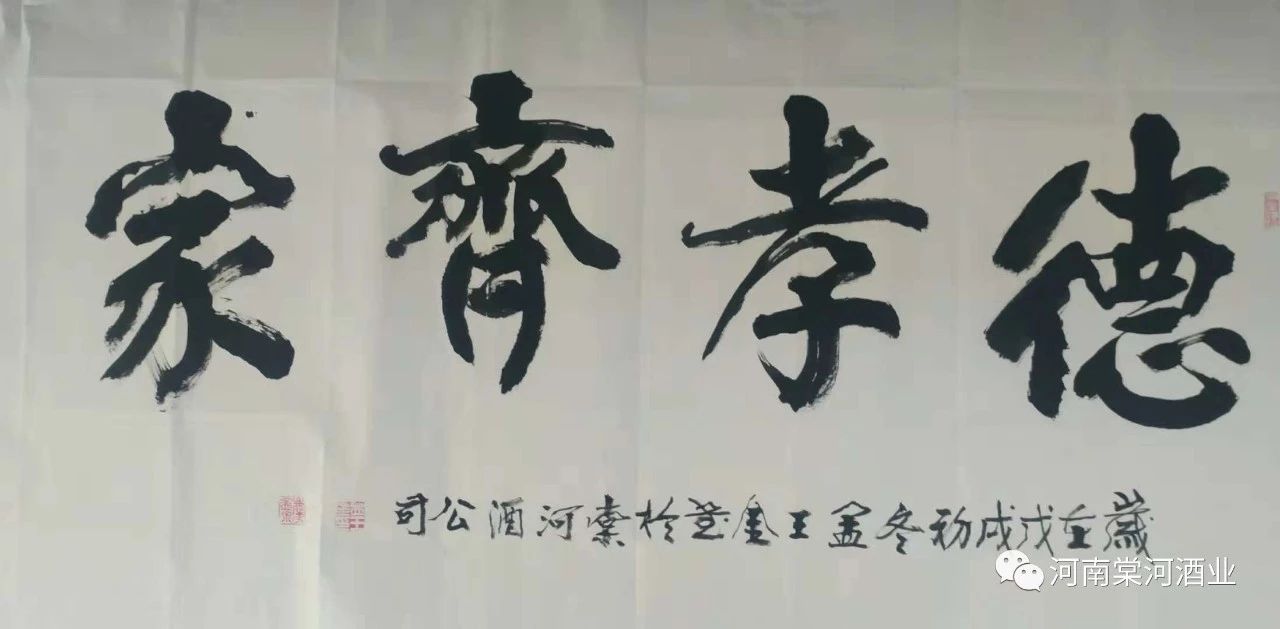 德孝齊家
歲在戊戌初冬孟王金艺於棠河酒公司
河南棠河酒业